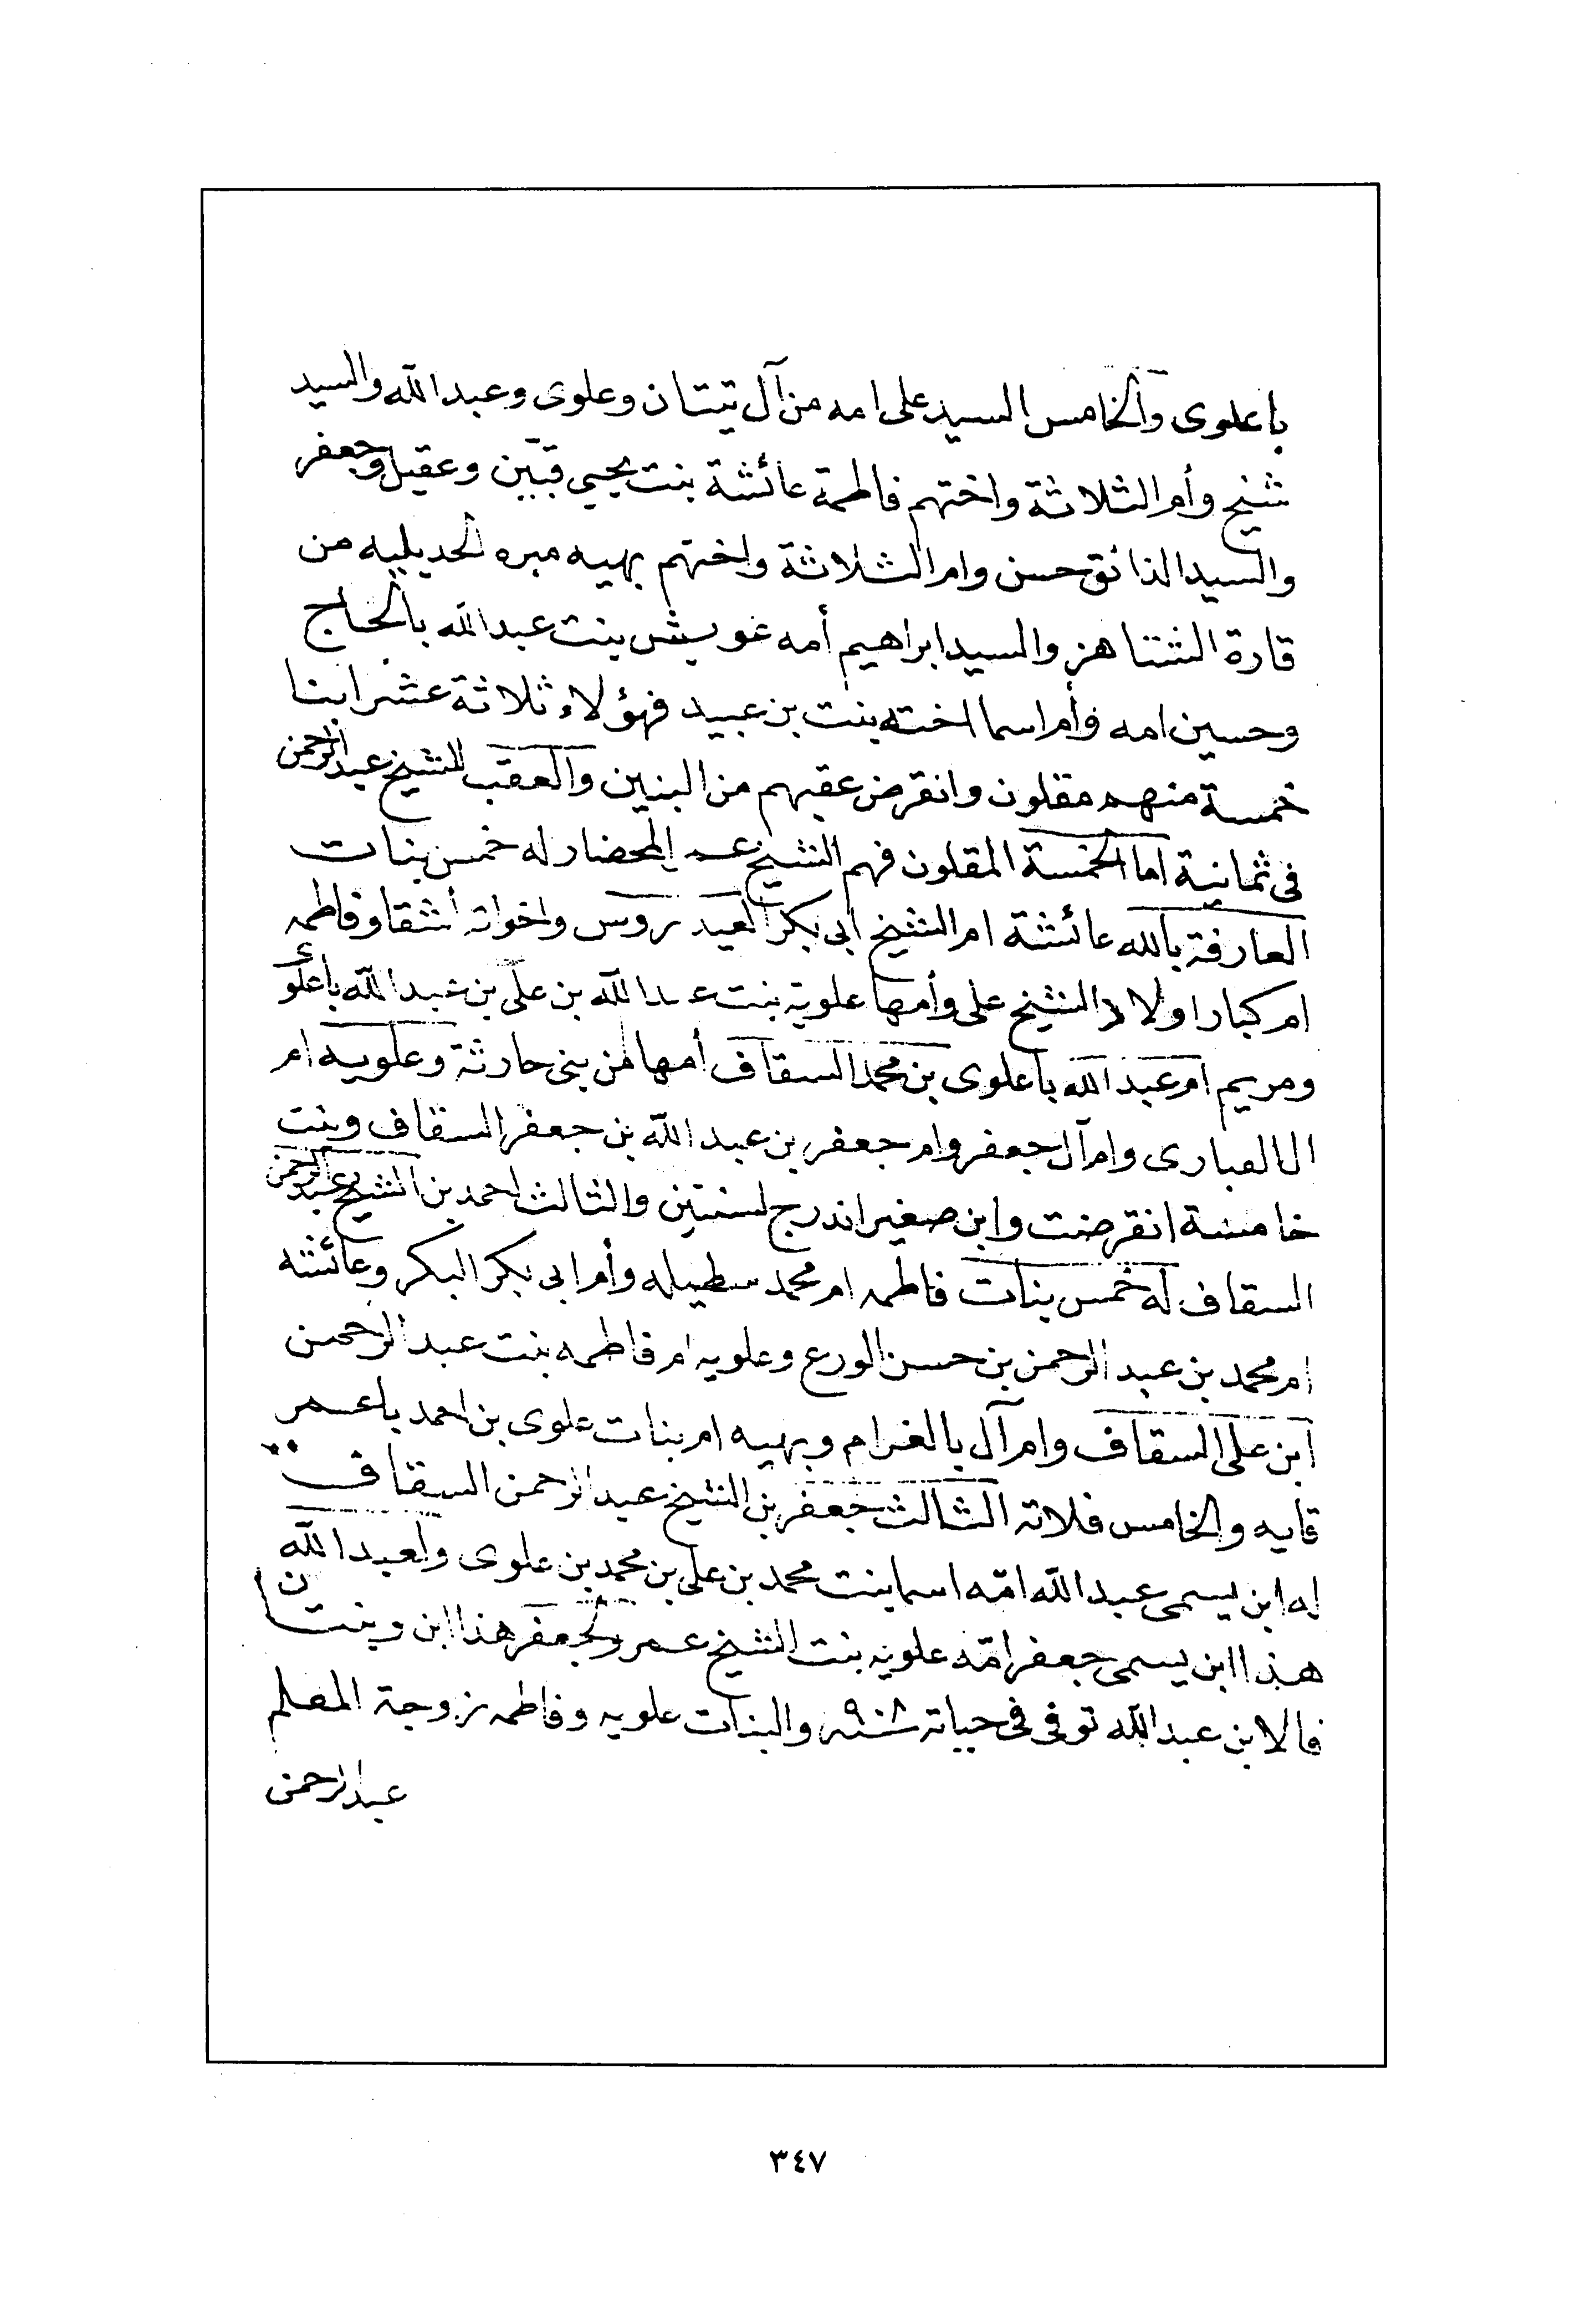 باعلوى والخامس السيد على امه من آل تتان وعلوى وعبد الله والسيد
شيخ وأم الثلاثة واختهم فاطمة عائشة بنت يحيى قبين وعقيل وجعفر
والسيد الذائق حسن وام الثلاثة واختهم بهيه مبره الحديليه من
قارة الشناهز والسيد ابراهيم أمه غويش بنت عبد الله بالحاج
وحسين امه وأم اسما اخته بنت بن عبيد فهؤلاء ثلاثة عشر ابنا
خمسة منهم مقلون وانقرض عقبهم من البنين والعقب للشيخ عبد الرحمن
فى ثمانية اما الخمسة المقلون فهم الشيخ عمر المحضار له خمس بنات
العارفة بالله عائشة ام الشيخ ابى بكر العيدروس واخواته أشقا وفاطمه
ام كبار اولاد الشيخ على وأمها علوية بنت عبد الله بن على بن عبد الله باعلوى
ومريم ام عبد الله باعلوى بن محمد السقاف أمها من بنى حارثة وعلويه ام
ال العبارى وام آل جعفر وام جعفر بن عبد الله بن جعفر السقاف وبنت
خامسة انقرضت وابن صغير اندرج لسنتين والثالث احمد بن الشيخ عبد الرحمن
السقاف له خمس بنات فاطمه ام محمد سطيله وأم ابى بكر البكر وعائشه
ام محمد بن عبد الرحمن بن حسن الورع وعلويه ام فاطمه بنت عبد الرحمن
ابن على السقاف وام آل بالغرام وبهيه ام بنات علوى بن احمد باعمر
قايه والخامس فلانة الثالث جعفر بن الشيخ عبد الرحمن السقاف
له ابن يسمى عبد الله امّه اسما بنت محمد بن على بن محمد بن علوى ولعبد الله
هذا ابن يسمى جعفر امّه علويه بنت الشيخ عمر ولجعفر هذا ابن وبنتان
فالابن عبد الله توفى فى حياته والبنات علويه وفاطمه زوجة المعلم
عبد الرحمن
٣٤٧